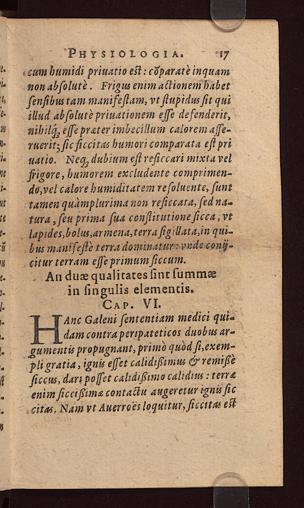 PHYSIOLOGIA. 17
cum humidi priuatio est: cõparatè inquam
non absolutè. Frigus enim actionem habet
sensibus tam manifestam, vt stupidus sit qui
illud absolutè priuationem esse defenderit,
nihilq́, esse præter imbecillum calorem asse-
ruerit; sic siccitas humori comparata est pri
uatio. Neq, dubium est resiccari mixta vel
frigore, humorem excludente comprimen-
do, vel calore humiditatem resoluente, sunt
tamen quàmplurima non resiccata, sed na-
tura, seu prima sua constitutione sicca, vt
lapides, bolus, armena, terra sigillata, in qui-
bus manifestè terra dominatur: vnde conij-
citur terram esse primum siccum.
An duæ qualitates sint summæ
in singulis elementis.
CAP. VI.
HAnc Galeni sententiam medici qui-
dam contra peripateticos duobus ar-
gumentis propugnant, primò quòd si, exem-
pli gratia, ignis esset calidißimus & remißè
siccus, dari posset calidißimo calidius: terræ
enim siccißimæ contactu augeretur ignis sic
citas. Nam vt Auerroës loquitur, siccitas est